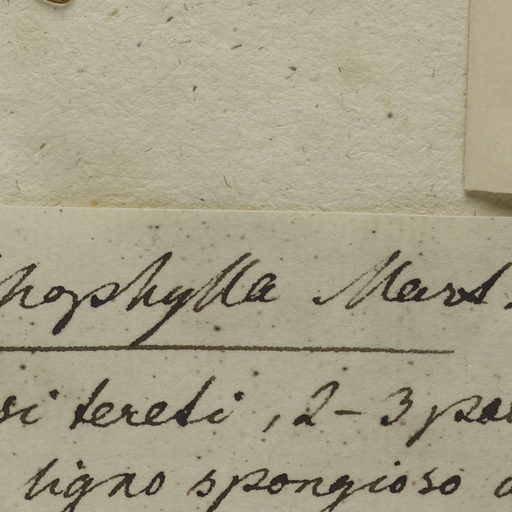 hophylla Mart.
si tereti, 2-3 pe
ligno spongioso